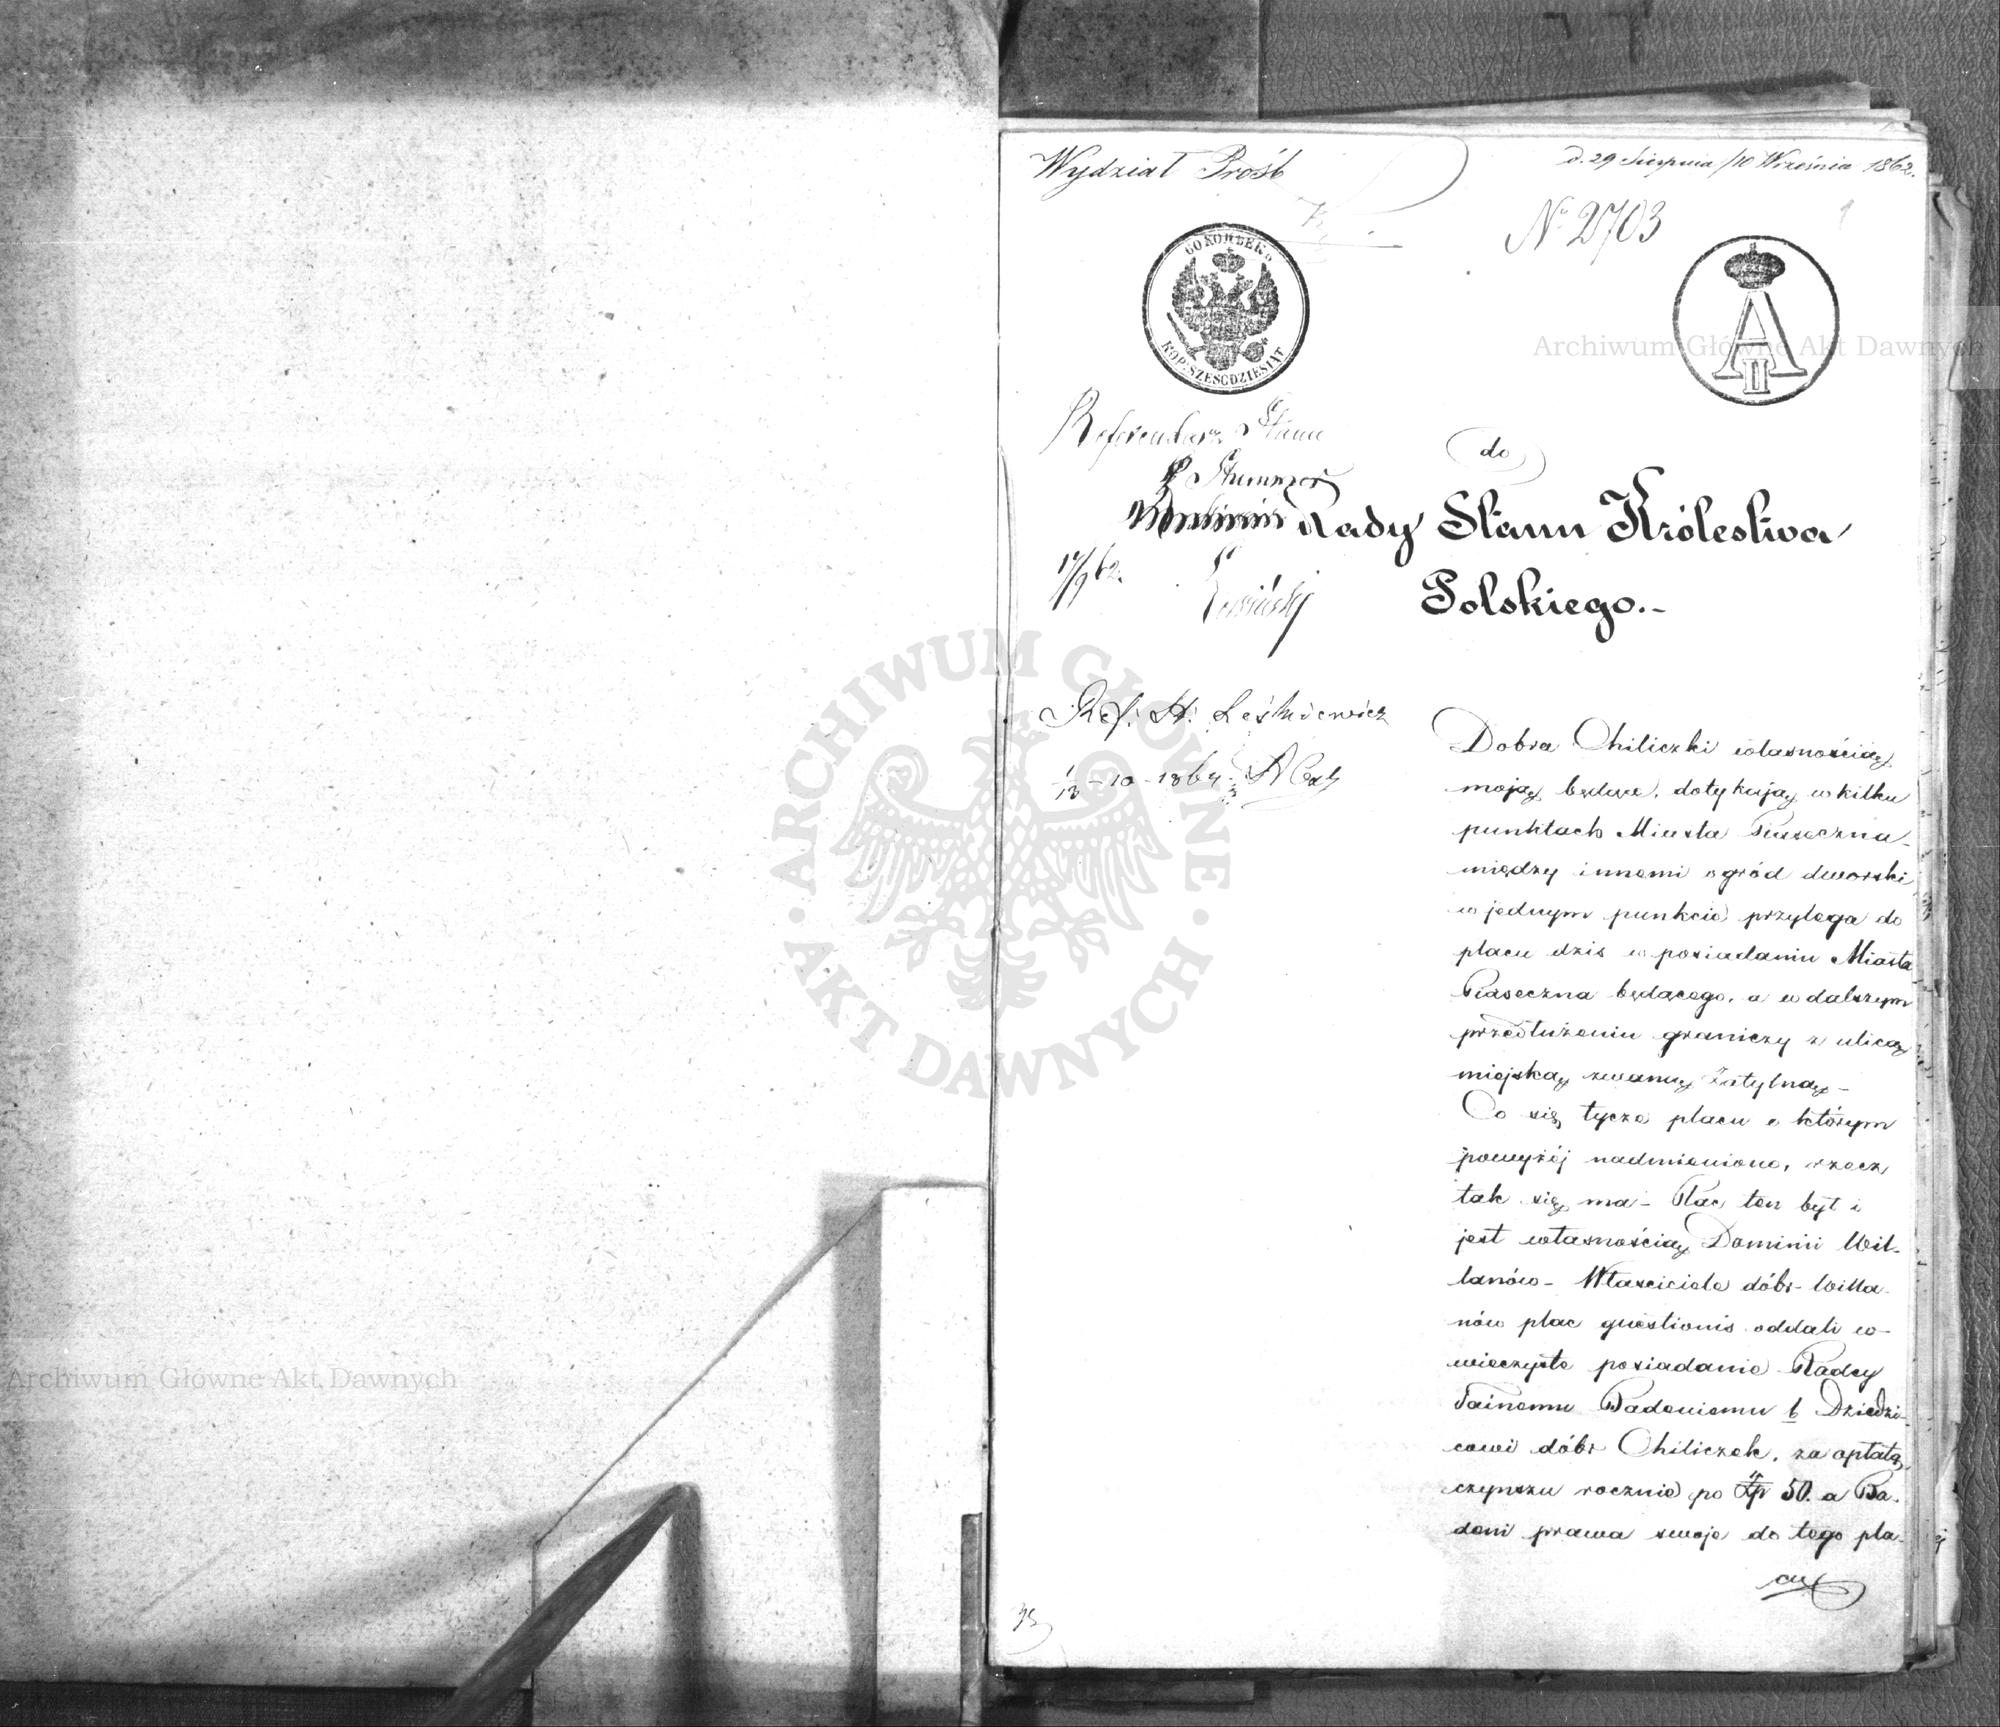 Wydział Próśb
d. 29 Sierpnia /10 Września 1862.
№ 2703
1
60 КОПѢЕКЪ
KOP: SZEŚĆDZIESIĄT
A II
Archiwum Główne Akt Dawnych
Referendarz Stanu
Stummer
17/9 62.
do
Rady Stanu Królestwa
Polskiego.-
Ref: St: Leśkiewicz
1/13 - 10 - 1864
Dobra Chiliczki własnością
moją będące, dotykają w kilku
punktach Miasta Piaseczna
między innemi ogród dworski
w jednym punkcie przylega do
placu dziś w posiadaniu Miasta
Piaseczna będącego, a w dalszym
przedłużeniu graniczy z ulicą
miejską zwaną Zatylną-
Co się tycze placu o którym
powyżéj nadmieniono, rzecz
tak się ma- Plac ten był i
jest własnością Dominii Wil-
lanów- Właściciele dóbr Willa-
nów plac questionis oddali w-
wieczyste posiadanie Radcy
Tajnemu Badeniemu b Dziedzi-
cowi dóbr Chiliczek, za opłatą
czynszu rocznie po Złp 50. a Ba-
deni prawa swoje do tego pla-
cu
ARCHIWUM GŁÓWNE · AKT DAWNYCH ·
Archiwum Główne Akt Dawnych